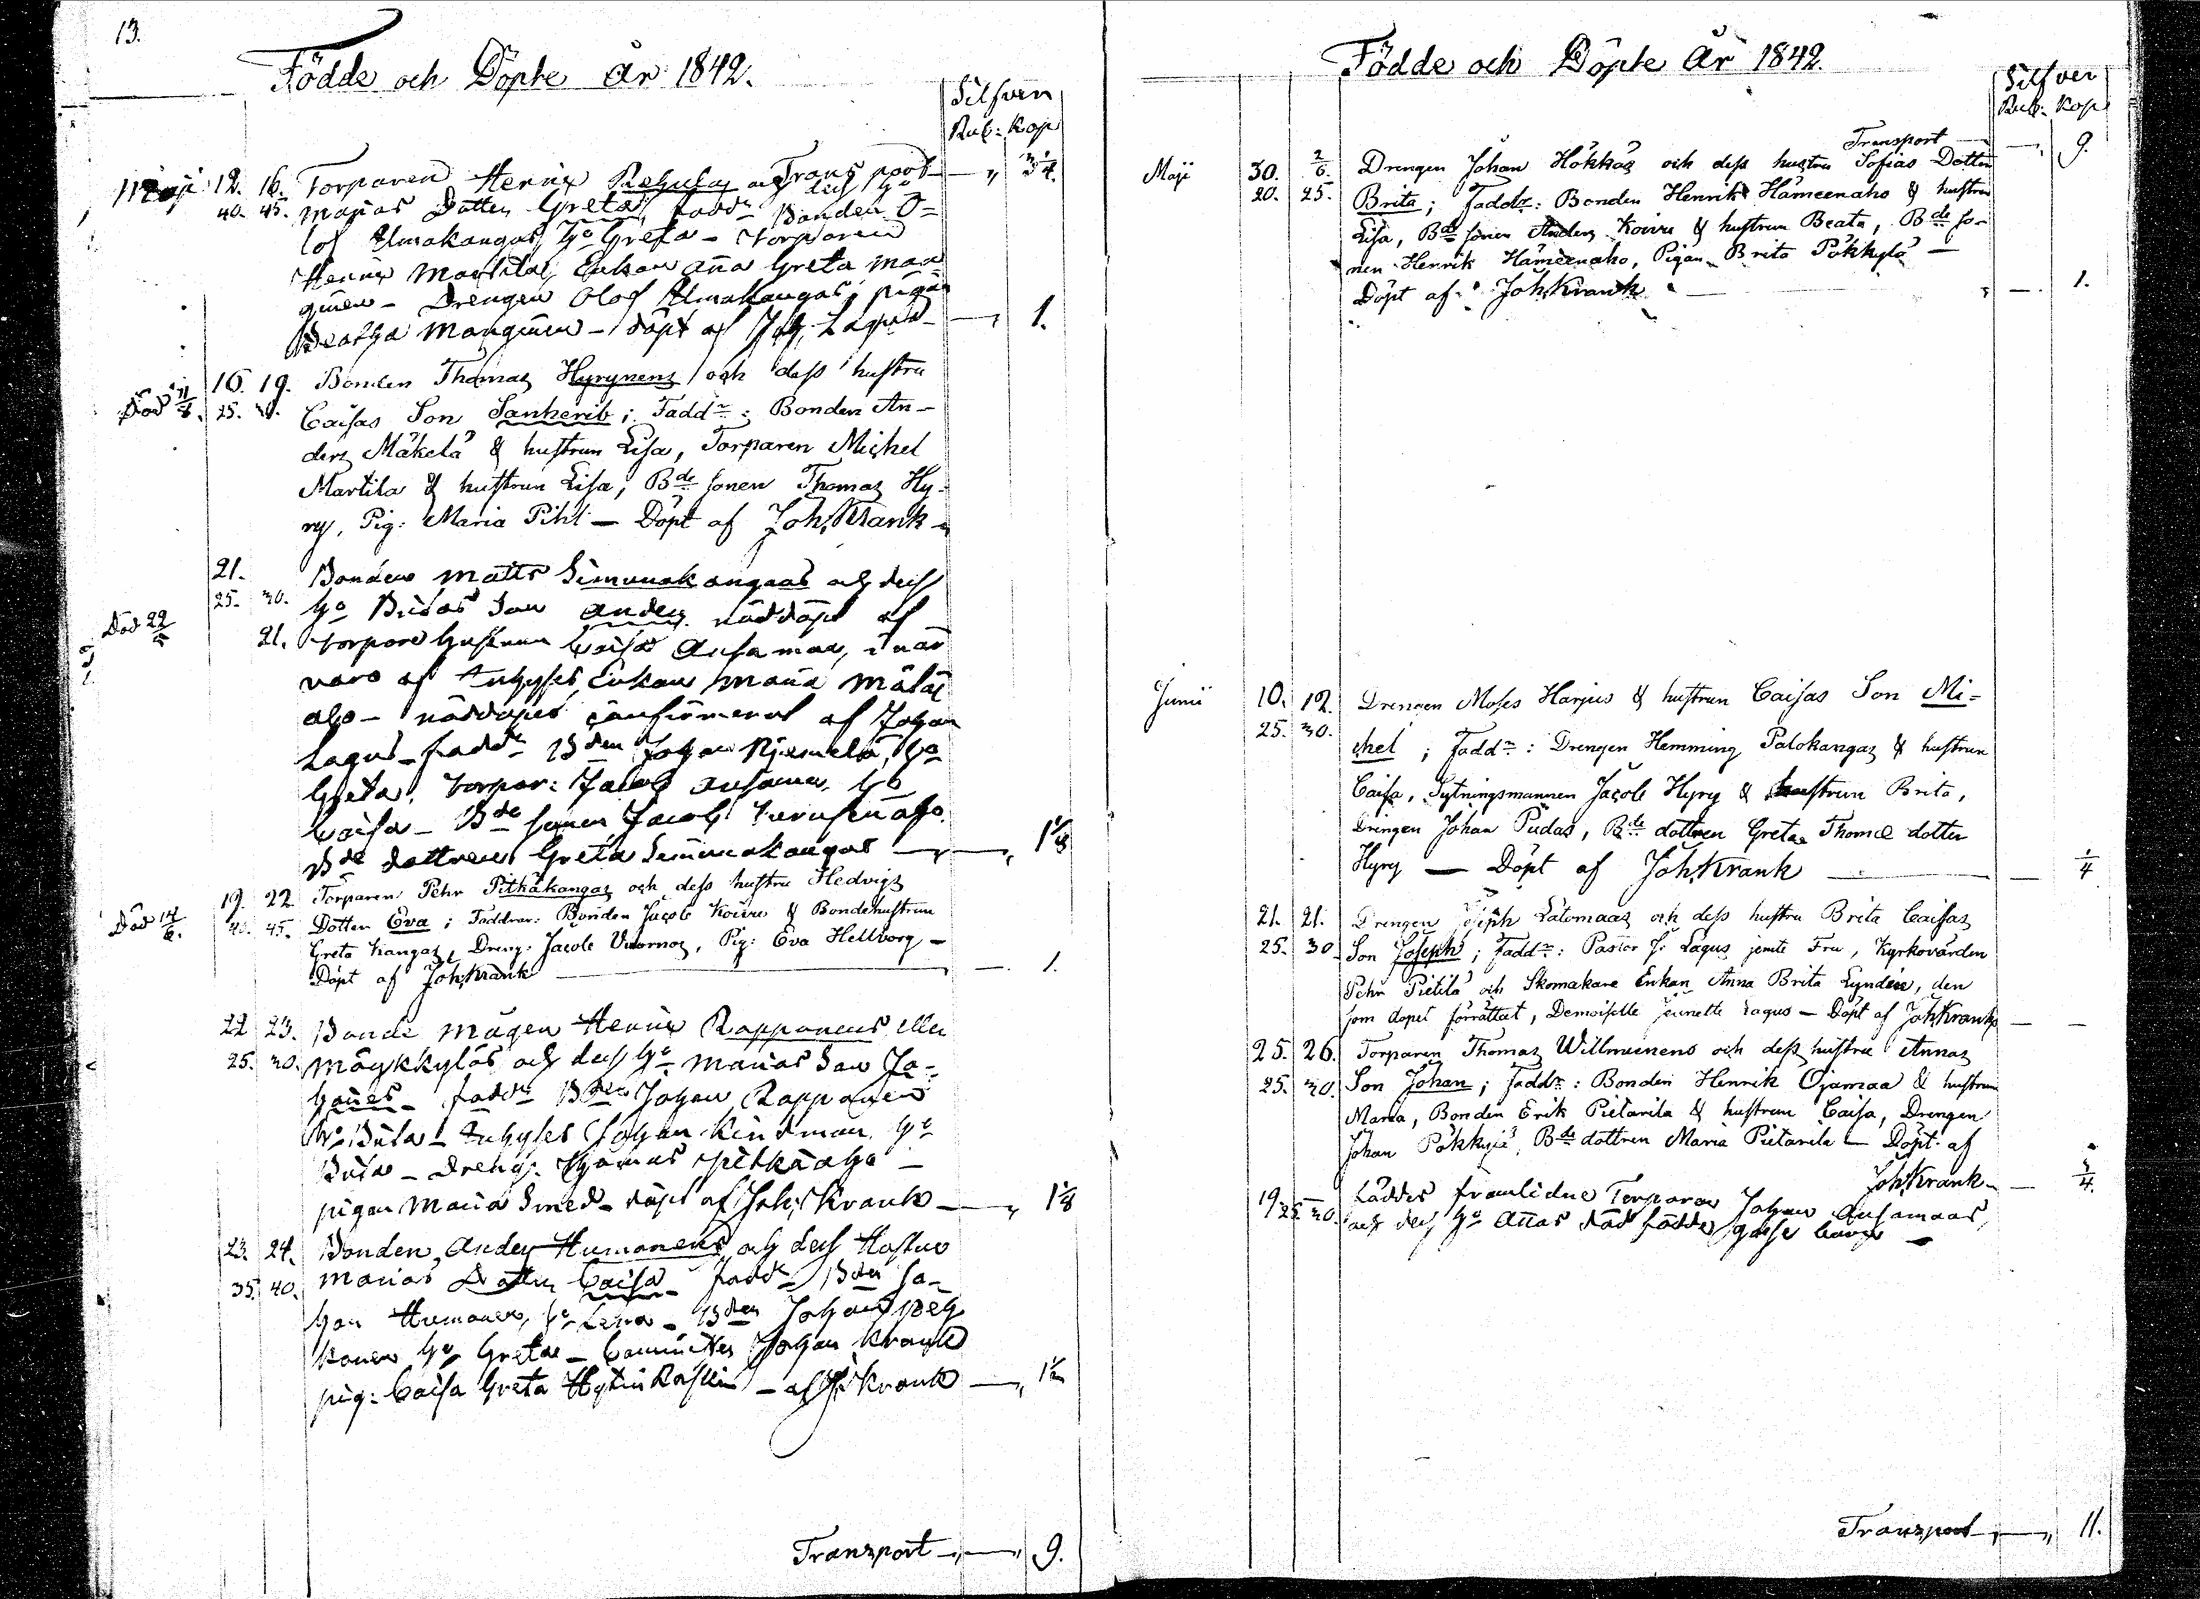 13.
Födde och Döpte år 1842.
Silfver
Rub: Kop
Transport
Maji 12. 16. Torparen Henric och dess hu
40. 45. Marias Dotter Greta, fadd: Bonden O=
lof Ulmakangas, hu Greta - Torparen
Henric Martila, Enkan Anna Greta Man
ginen - Drengen Olof Ulmakangas, pigan
Beatha Manginen - döpt af Joh. Lagus - 1.
16. 19. Bonden Thomas Hyrynens och dess hustru
Död 11/8. 25. Caisas Son Sanherib; Fadd:r: Bonden An-
ders Mäkelä & hustrun Lisa, Torparen Michel
Martila & hustrun Lisa, Bde sonen Thomas Hy-
ry, Pig: Maria Pihl — Döpt af Joh. Krank
21. Bonden Matts Simunakangaas och dess
25. 30. hu Britas Son Anders nöddöpt af
Död 22 21. torpare hustrun Caisa Ansamaa, i när
varo af Inhyses Enkan Maria Mälas
aho - nöddopet confirmerat af Johan
Lagus - fadd:r Bden Johan Niemelä, hu
Greta, torpar: Jacob Ansamaa, hu
Caisa - Bde sonen Jacob
Bde dottren Greta Simunakangas
19. 22. Torparen Pehr Pitkäkangas och dess hustru Hedvigs
Död 14/6. 40. 45. Dotter Eva; Faddrar: Bonden Jacob Koivu & Bondehustrun
Greta Kangas, Dreng: Jacob Vuornos, Pig: Eva Hellborg -
Döpt af Joh. Krank — 1.
22 23. Bonde mågen Henric Rapponens eller
25. 30. Mäykkyläs och dess hu Marias Son Jo-
hannes - fadd:r Bden Johan Rapponen
hu Brita - Inhyses Johan Kindman, hu
Brita - Dreng: Thomas Pitkäaho -
pigan Maria Smed - döpt af Joh. Krank
23. 24. Bonden Anders Humonens och dess Hustru
35. 40. Marias Dotter Caisa - fadd:r Bden Jo-
han Humonen, hu Lena - Bden Johan Peh
konen hu Greta - Comminister Johan Krank
pig: Caisa Greta - af J: Krank
Transport 9.
Födde och Döpte År 1842.
Silfver
Rub: Kop
Transport 9.
Maji 30. 2/6. Drengen Johan Hökkäs och dess hustru Sofias Dotter
20. 25. Brita; Fadd:r: Bonden Henrik Hämeenaho & hustrun
Lisa, Bde sonen Anders Koivu & hustrun Beata, Bde so-
nen Henrik Hämeenaho, Pigan Brita Pökkylä —
Döpt af Joh. Krank — 1.
Junii 10. 12. Drengen Moses Harjus & hustrun Caisas Son Mi-
25. 30. chel; Fadd:r: Drengen Hemming Palokangas & hustrun
Caisa, Sytningsmannen Jacob Hyry & hustrun Brita,
Drengen Johan Pudas, Bde dottren Greta Thomæ dotter
Hyry — Döpt af Joh. Krank
21. 21. Drengen Joseph Latomaas och dess hustru Brita Caisas
25. 30. Son Joseph; Fadd:r: Pastor J: Lagus jemte Fru, Kyrkovärden
Pehr Pietilä och Skomakare Enkan Anna Brita Lyndén, den
som dopet förrättat, Demoiselle Jeanette Lagus — Döpt af Joh. Krank
25. 26. Torparen Thomas Willmunens och dess hustru Annas
25. 30. Son Johan; Fadd:r: Bonden Henrik Ojamaa & hustrun
Maria, Bonden Erik Pietarila & hustrun Caisa, Drengen
Johan Pökkylä, Bde dottren Maria Pietarila — Döpt af
Joh. Krank
19. Föddes framlidne Torparen Johan Ansamaas
25. 30. och dess hu Annas död födde gosse barn —
Transport 11.